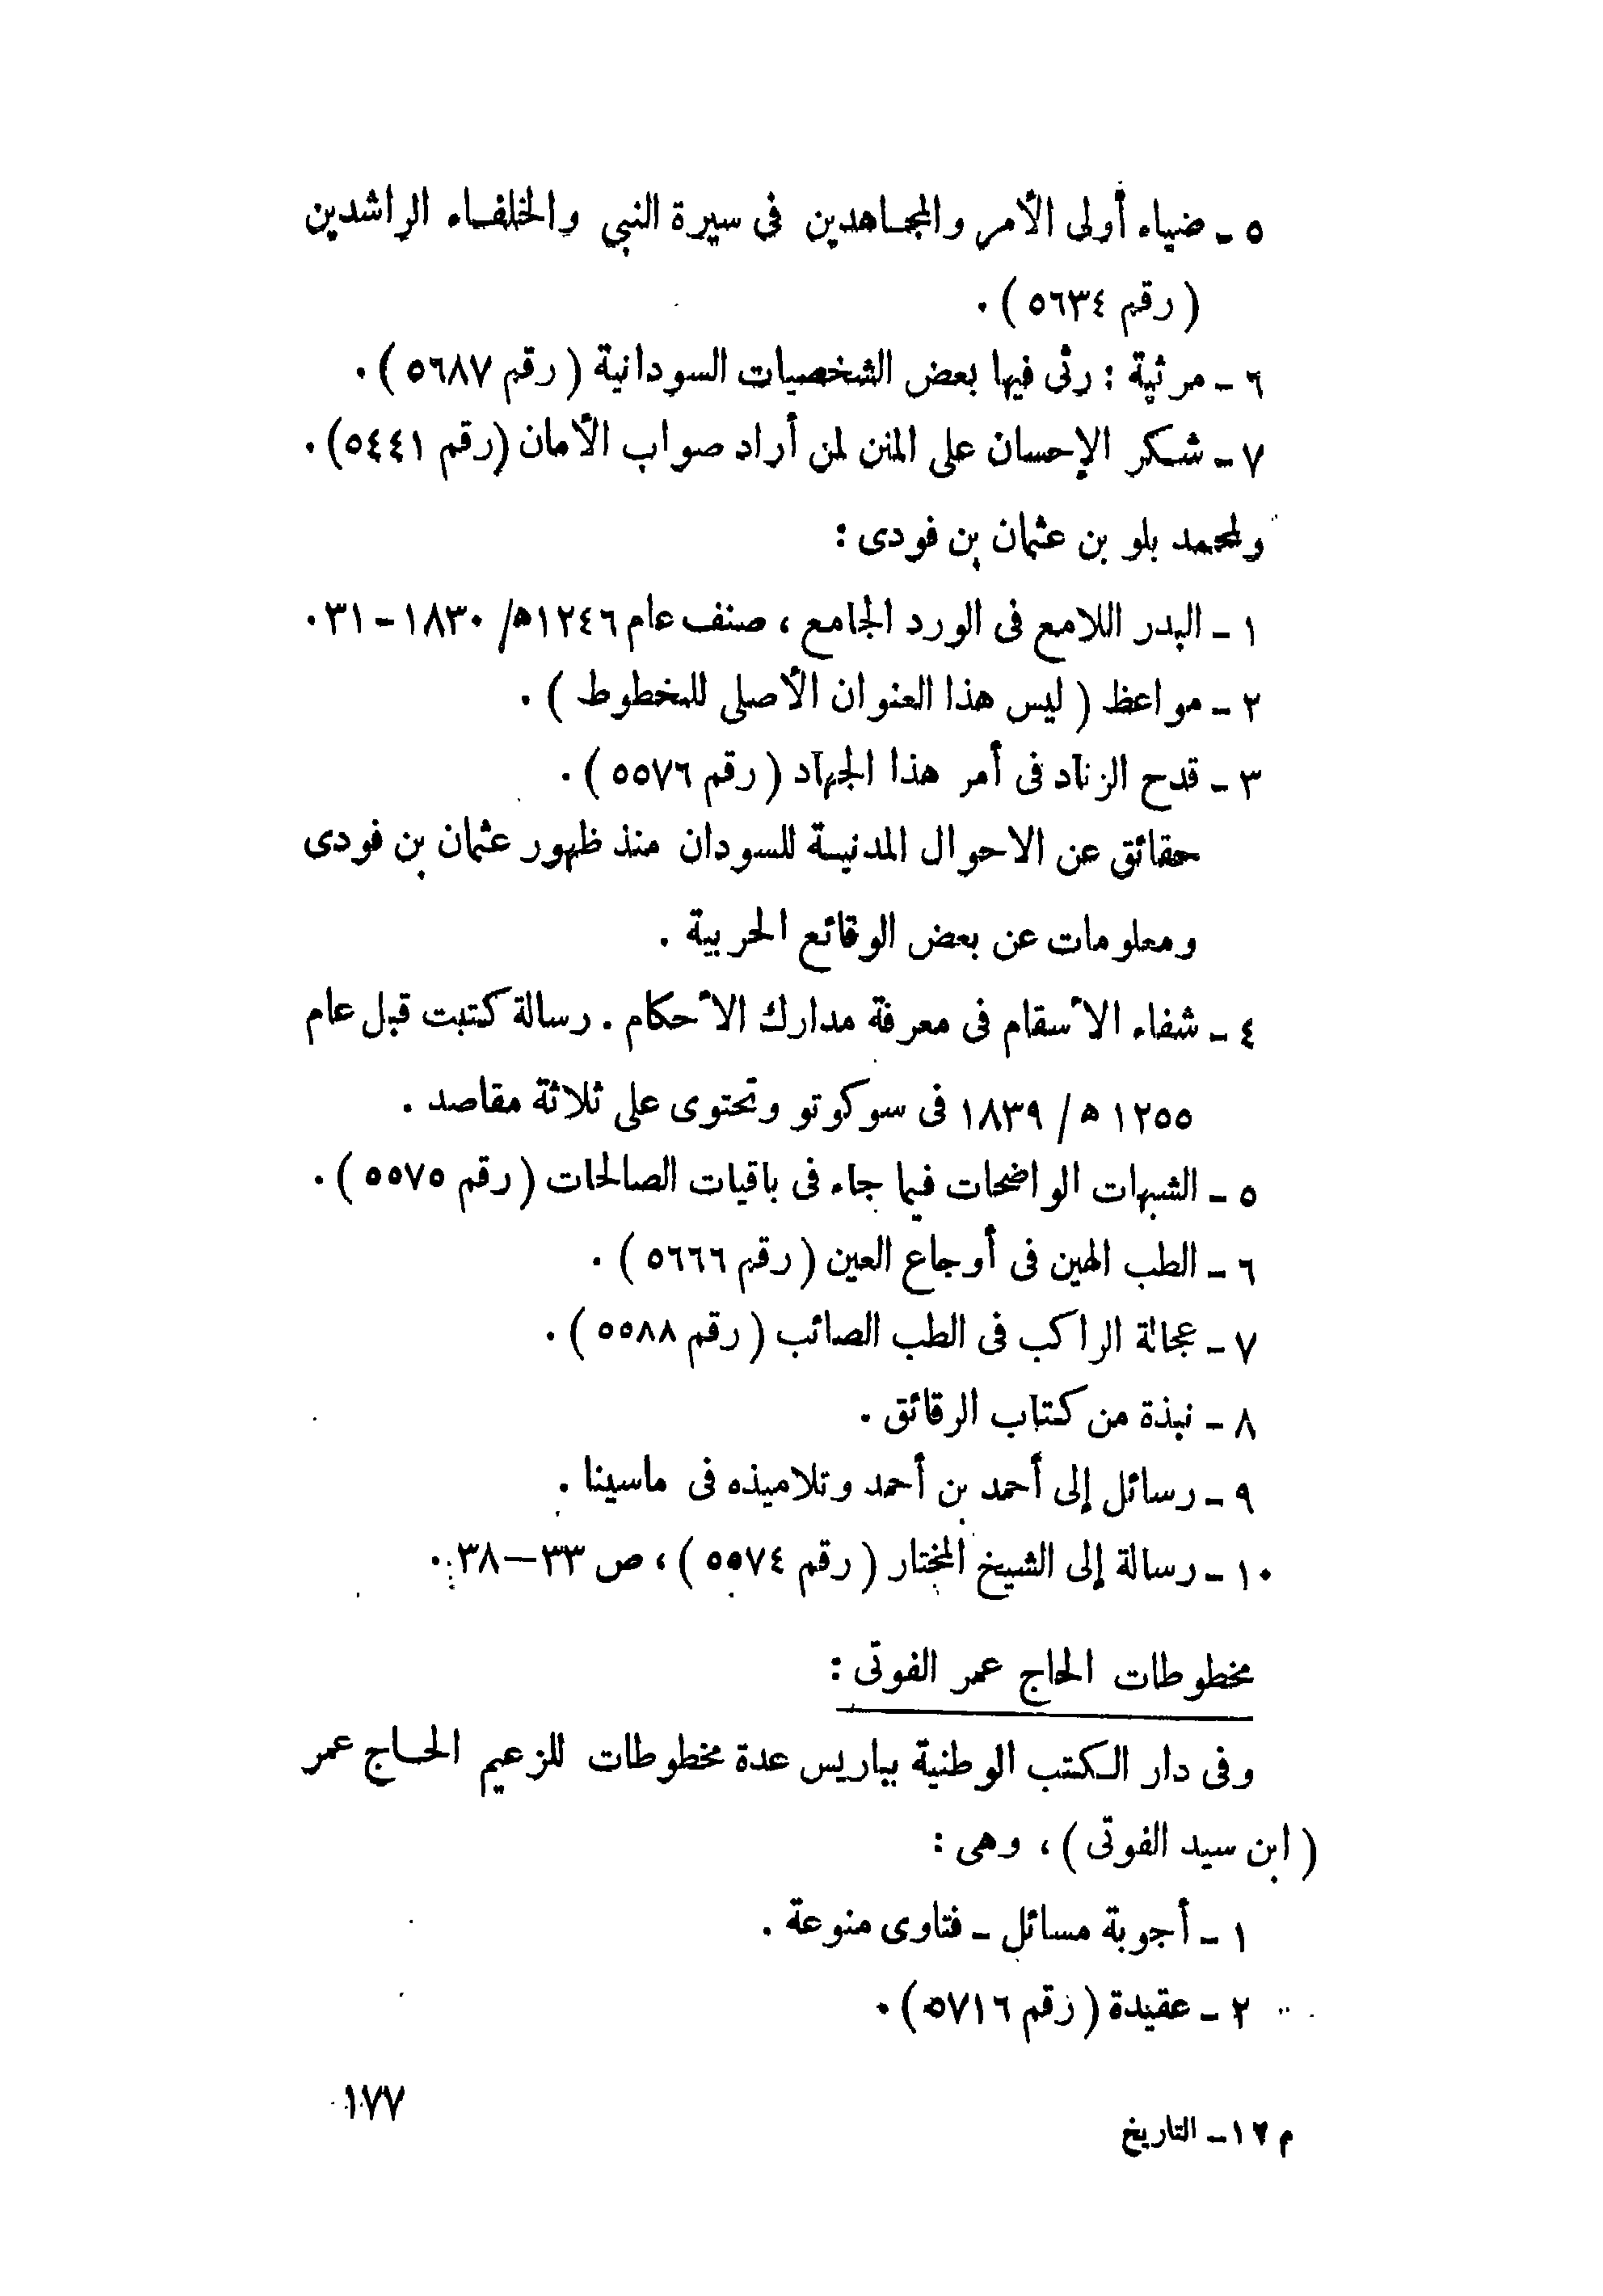 ٥ - ضياء أولى الأمر والمجاهدين فى سيرة النبي والخلفاء الراشدين
( رقم ٥٦٣٤ ) .
٦ - مرثية : رثى فيها بعض الشخصيات السودانية ( رقم ٥٦٨٧ ) .
٧ - شكر الإحسان على المنن لمن أراد صواب الأمان (رقم ٥٤٤١) .
ولمحمد بلو بن عثمان بن فودى :
١ - البدر اللامع فى الورد الجامع ، صنف عام ١٢٤٦ه/ ١٨٣٠ - ٣١ .
٢ - مواعظ ( ليس هذا العنوان الأصلى للمخطوط ) .
٣ - قدح الزناد فى أمر هذا الجهاد ( رقم ٥٥٧٦ ) .
حقائق عن الاحوال المدنية للسودان منذ ظهور عثمان بن فودى
ومعلومات عن بعض الوقائع الحربية .
٤ - شفاء الأسقام فى معرفة مدارك الأحكام . رسالة كتبت قبل عام
١٢٥٥ ه / ١٨٣٩ فى سوكوتو وتحتوى على ثلاثة مقاصد .
٥ - الشبهات الواضحات فيما جاء فى باقيات الصالحات ( رقم ٥٥٧٥ ) .
٦ - الطب الهين فى أوجاع العين ( رقم ٥٦٦٦ ) .
٧ - عجالة الراكب فى الطب الصائب ( رقم ٥٥٨٨ ) .
٨ - نبذة من كتاب الرقائق .
٩ - رسائل إلى أحمد بن أحمد وتلاميذه فى ماسينا .
١٠ - رسالة إلى الشيخ المختار ( رقم ٥٥٧٤ ) ، ص ٣٣ — ٣٨ .
مخطوطات الحاج عمر الفوتى :
وفى دار الكتب الوطنية بباريس عدة مخطوطات للزعيم الحاج عمر
( ابن سيد الفوتى ) ، وهى :
١ - أجوبة مسائل - فتاوى منوعة .
٢ - عقيدة ( رقم ٥٧١٦ ) .
١٧٧
م ١٢ - التاريخ